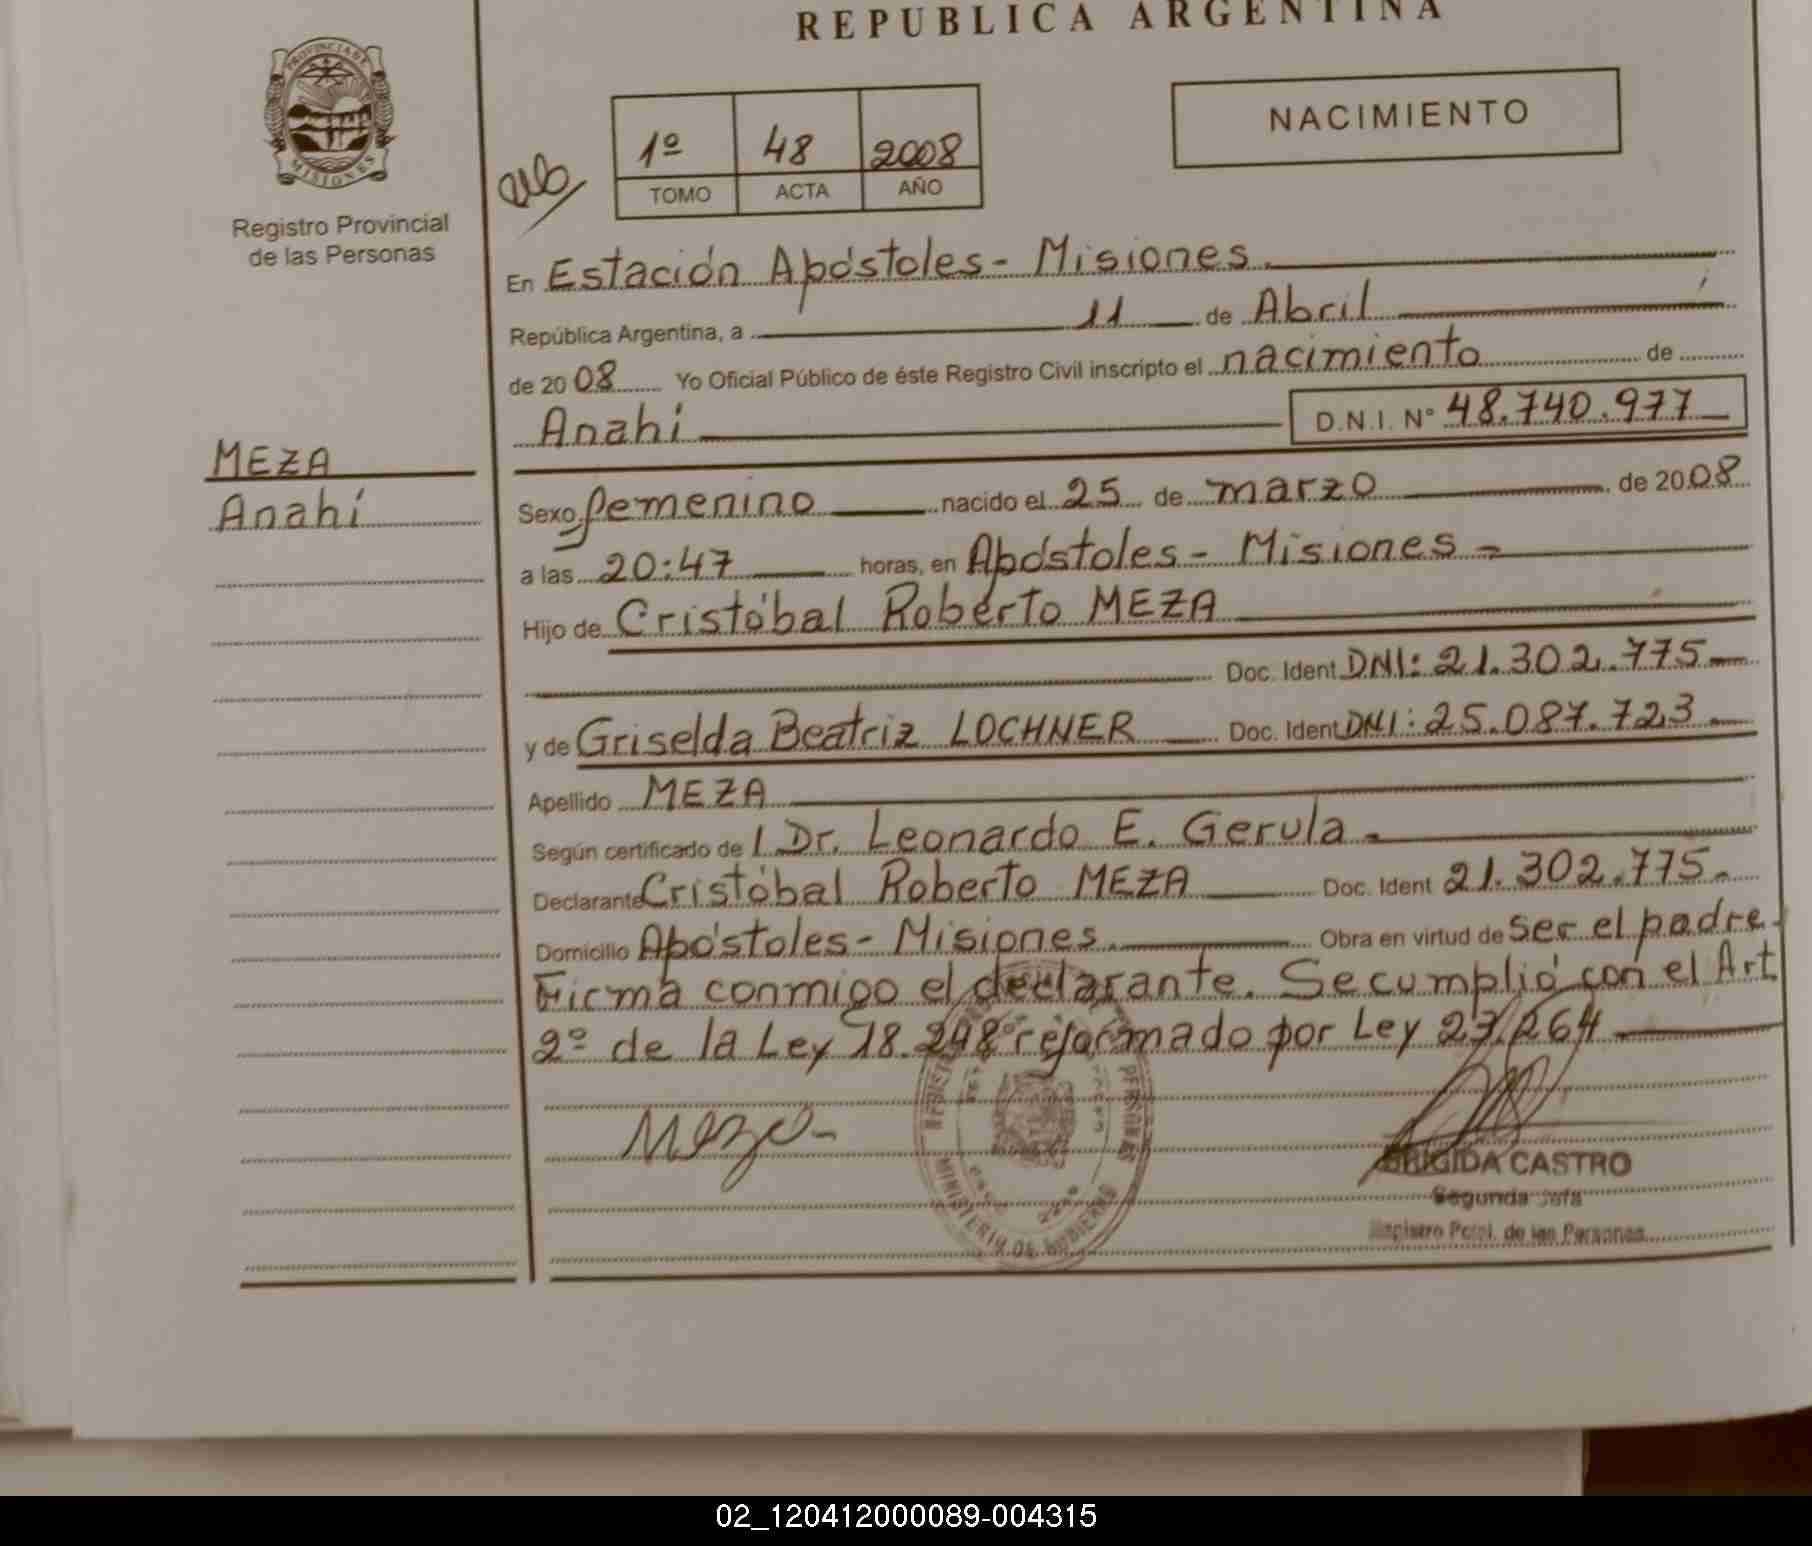 REPUBLICA ARGENTINA
PROVINCIA DE
MISIONES
Registro Provincial
de las Personas
NACIMIENTO
1º 48 2008
TOMO ACTA AÑO
En Estación Apóstoles - Misiones.
República Argentina, a 11 de Abril
de 2008 Yo Oficial Público de éste Registro Civil inscripto el nacimiento de
Anahí D.N.I. Nº 48.740.977
MEZA
Anahí
Sexo femenino nacido el 25 de marzo de 2008
a las 20:47 horas, en Apóstoles - Misiones -
Hijo de Cristóbal Roberto MEZA
Doc. Ident DNI: 21.302.775
y de Griselda Beatriz LOCHNER Doc. Ident DNI: 25.087.723
Apellido MEZA
Según certificado de l Dr. Leonardo E. Gerula
Declarante Cristóbal Roberto MEZA Doc. Ident 21.302.775.
Domicilio Apóstoles - Misiones. Obra en virtud de ser el padre.
Firma conmigo el declarante. Se cumplió con el Art.
2º de la Ley 18.248 reformado por Ley 23.264
Meza
BRIGIDA CASTRO
Segunda Jefa
Registro Pcial. de las Personas
MINISTERIO DE GOBIERNO
02_120412000089-004315